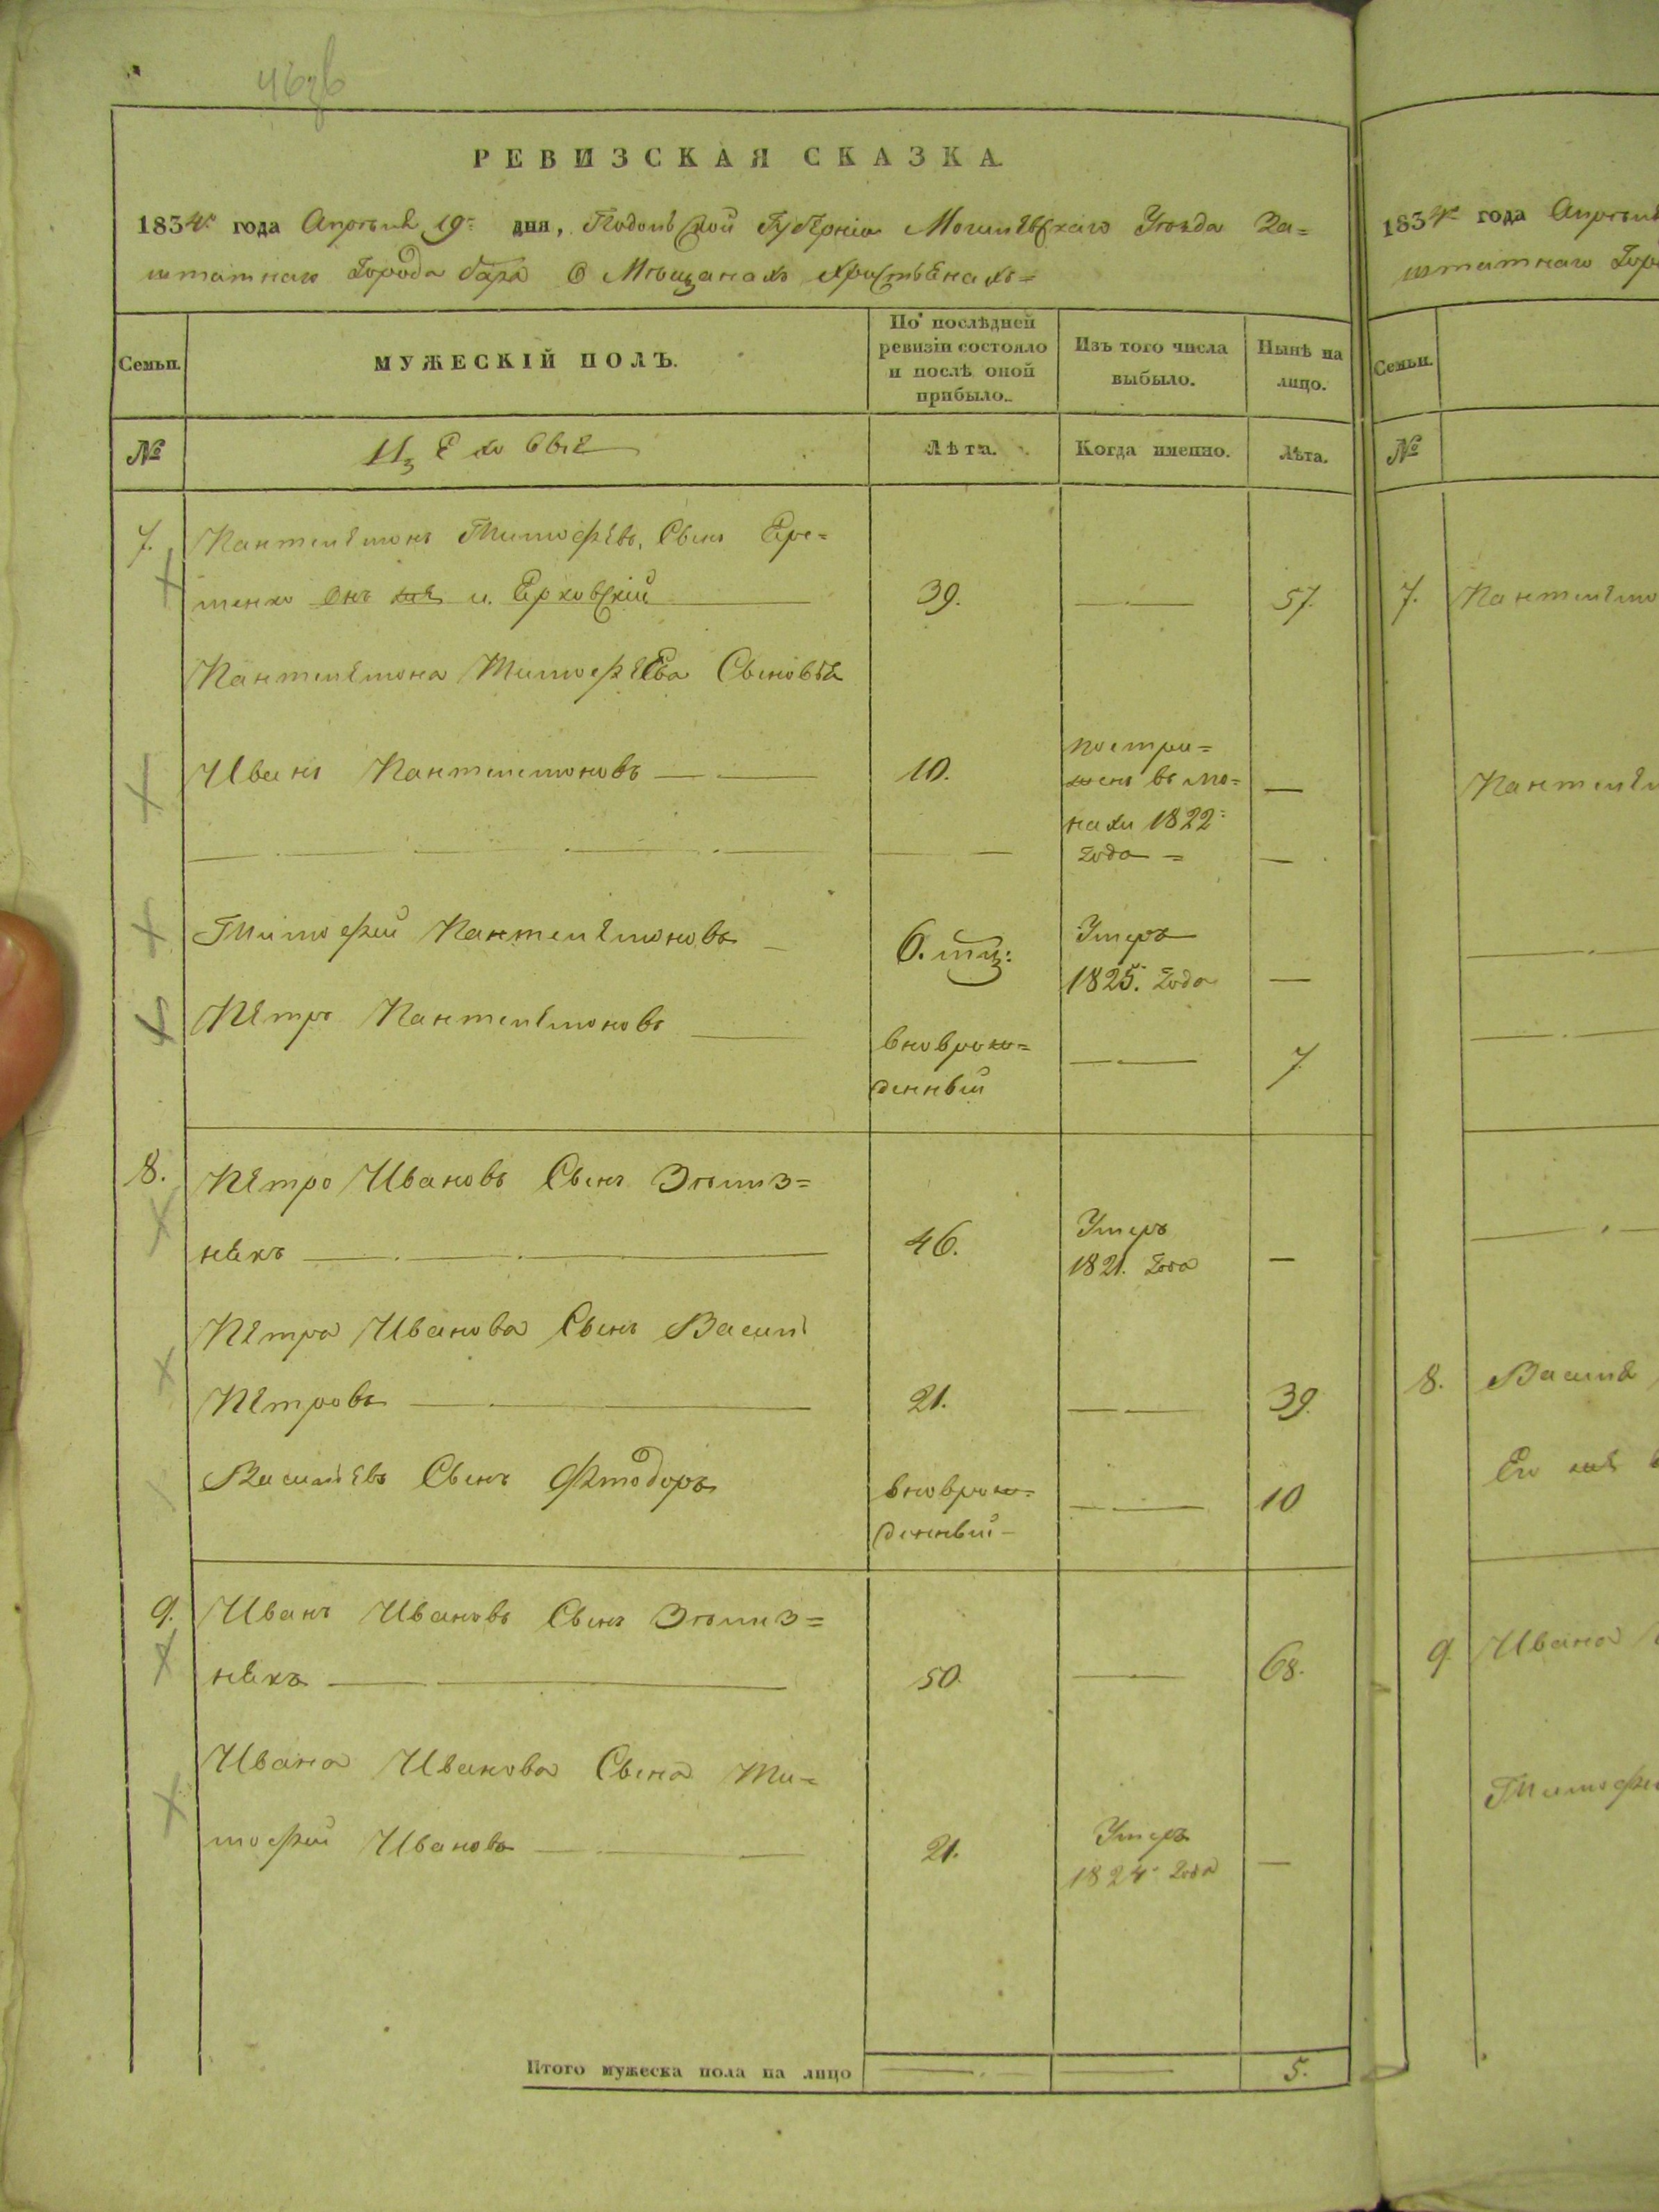 РЕВИЗСКАЯ СКАЗКА.
1834. года Апрѣля 19= дня, Подольской Губерніи Могилевскаго Уѣзда За=
штатнаго Города Бара О Мѣщанахъ христьянахъ=
Семьи.
МУЖЕСКІЙ ПОЛЪ.
По послѣдней ревизіи состояло и послѣ оной прибыло.
Изъ того числа выбыло.
Нынѣ на лицо.
№
Лѣта.
Когда именно.
Лѣта.
7. Пантелемонъ Тимофѣевъ, Сынъ Ере=
менко онъ же и Ерковскій 39. 57.
Пантелемона Тимофеева Сыновья
Иванъ Пантелемоновъ 10. постри=
женъ въ мо=
нахи 1822=
года =
Тимофей Пантелемоновъ 6. мц: Умеръ
1825. года
Петръ Пантелемоновъ вноврож=
денный 7
8. Петро Ивановъ Сынъ Змѣиз=
някъ 46. Умеръ
1821. года
Петра Иванова Сынъ Василі
Петровъ 21. 39.
Васильевъ Сынъ Фтодоръ вноврож=
денный 10
9. Иванъ Ивановъ Сынъ Змѣиз=
някъ 50. 68.
Ивана Иванова Сына Ти=
мофей Ивановъ 21. Умеръ
1824. года
Итого мужеска пола на лицо 5.
1834. года Апрѣля
штатнаго Горо
Семьи.
№
7. Пантелемо
Пантелем
8. Василія
Его же
9. Ивана
Тимофе